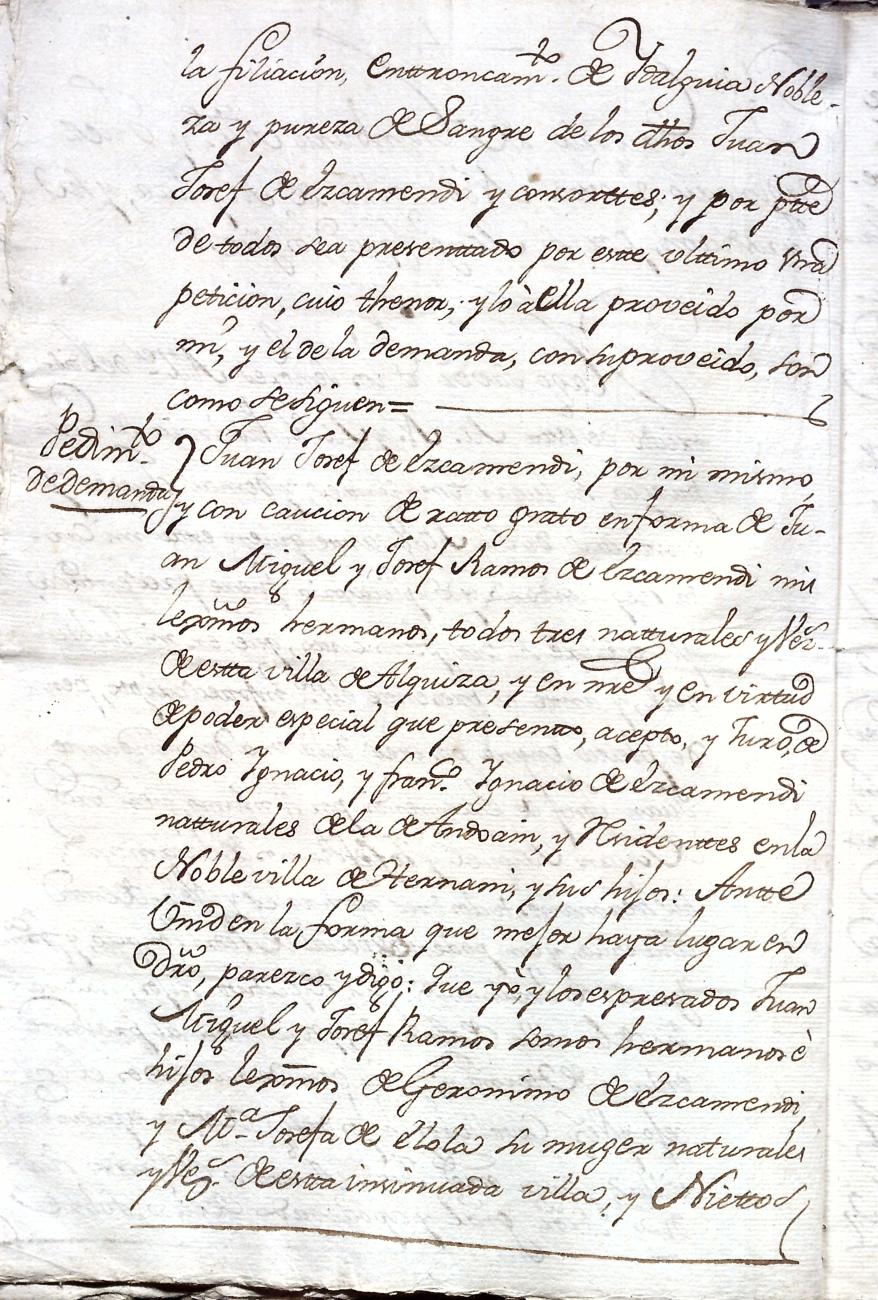 la filiación, enttroncamto. de Ydalguia Noble-
za y pureza de Sangre de los dhos Juan
Josef de Ezcamendi y consorttes; y por ptte
de todos sea presenttado por estte ulttimo una
petición, cuio thenor, y lo à ella proveido por
mi, y el de la demanda, con su proveido, son
como se siguen =
Pedimto.
de demanda
Juan Josef de Ezcamendi, por mi mismo,
y con caucion de ratto gratto en forma de Ju-
an Miguel y Josef Ramos de Ezcamendi mis
lexmos hermanos, todos tres natturales y Vezs.
de estta villa de Alquiza, y en nre y en virtud
de poder especial que presentto, acepto, y Juro, de
Pedro Ygnacio, y Franco. Ygnacio de Ezcamendi
natturales de la de Andoain, y Residenttes en la
Noble villa de Hernani, y sus hijos: Antte
Vmd en la forma que mejor haya lugar en
dro, parezco y digo: Que yò, y los espresados Juan
Miguel y Josef Ramos somos hermanos è
hijos lexmos de Geronimo de Ezcamendi,
y Ma. Josefa de Elola su muger naturales
y Vezs. de estta insinuada villa, y Niettos